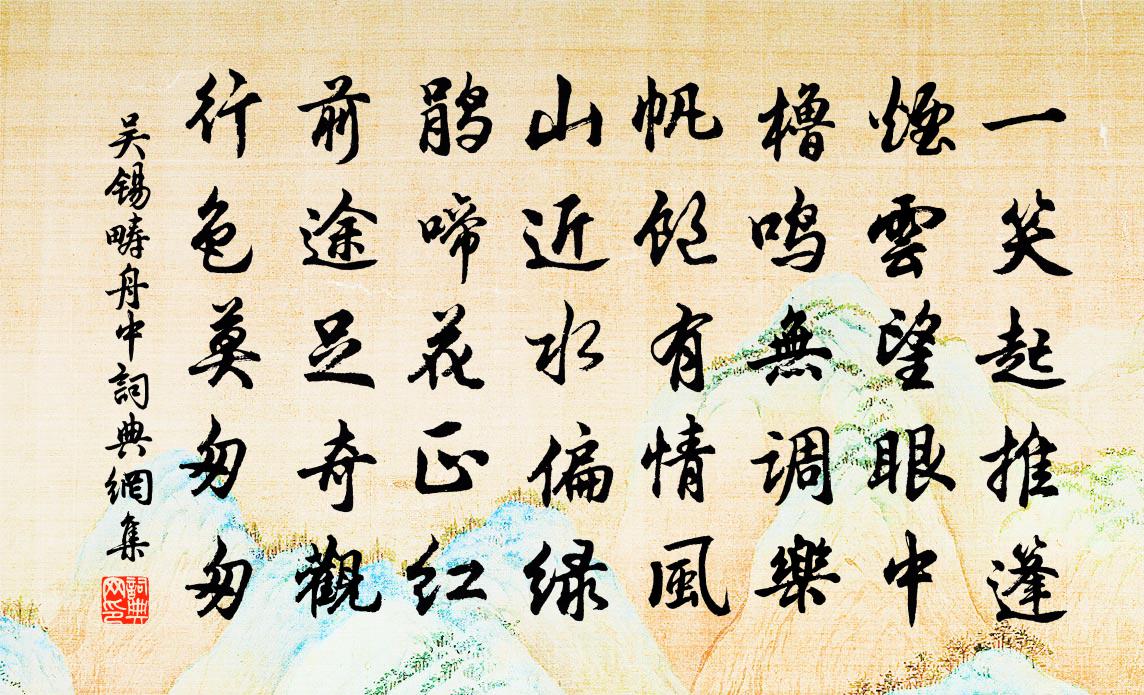 一笑起推篷
煙雲望眼中
櫓鳴無調樂
帆飽有情風
山近水偏绿
鹃啼花正红
前途足奇觀
行色莫匆匆
吴锡畴舟中詞典網集
詞典
网印